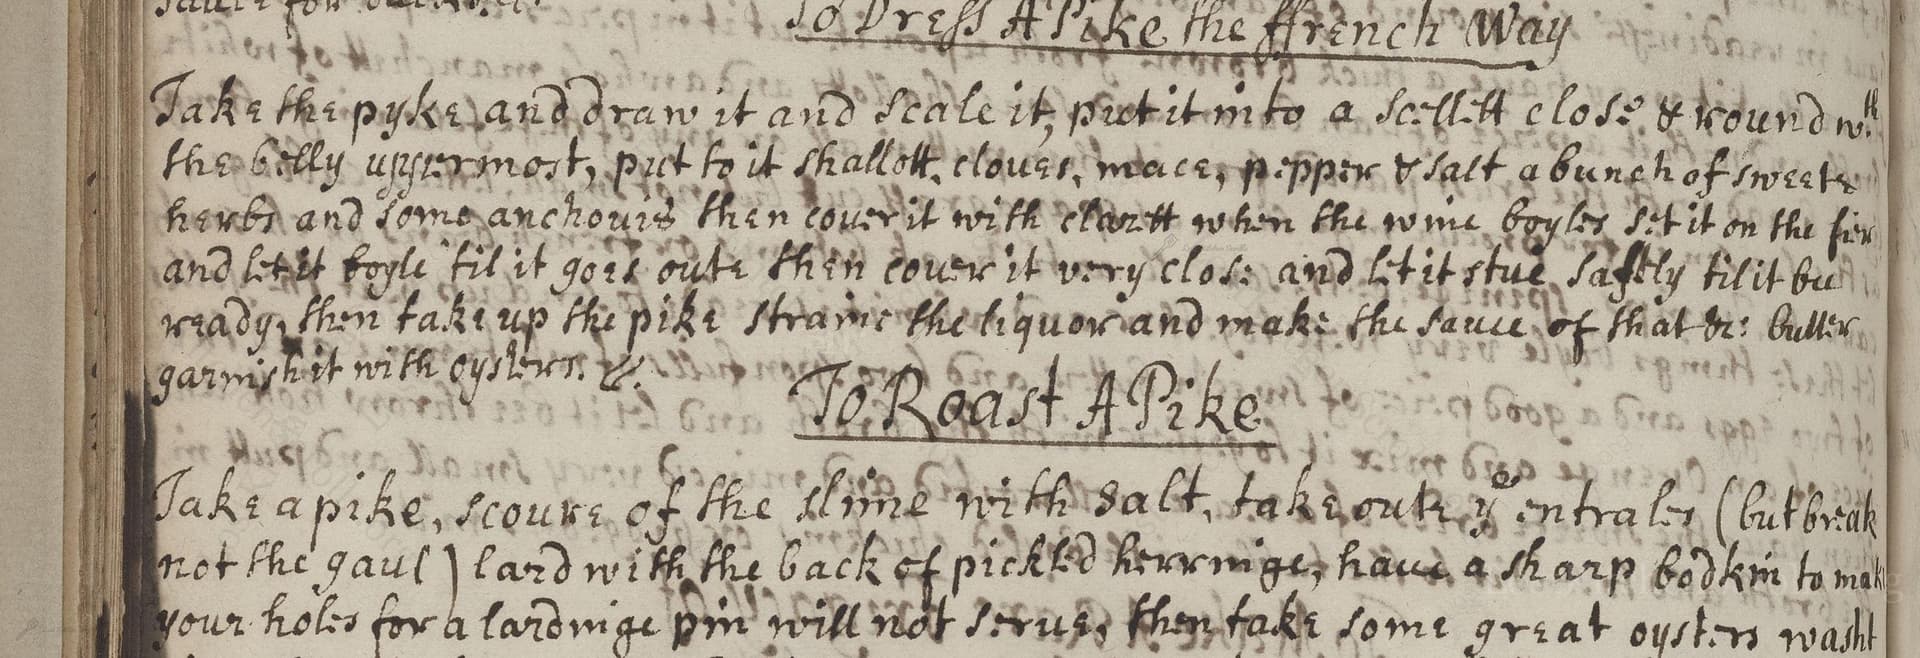 To Dress A Pike the ffrench Way
Take the pyke and draw it and scale it, put it into a scellett close & round wth
the belly uppermost, put to it shallott, cloues, mace, pepper & salt a bunch of sweete
herbs and some anchouis then couer it with clarett when the wine boyles set it on the fier
and let it boyle til it goes oute then couer it very close and let it stue saftly til it bee
ready, then take up the pike straine the liquor and make the sauce of that &c: butter
garnish it with oysters.
To Roast A Pike
Take a pike, scoure of the slime with salt, take oute ye entrales (but break
not the gaul) lard with the back of pickled herringe, haue a sharp bodkin to mak
your holes for a lardinge pin will not serue, then take some great oysters washt